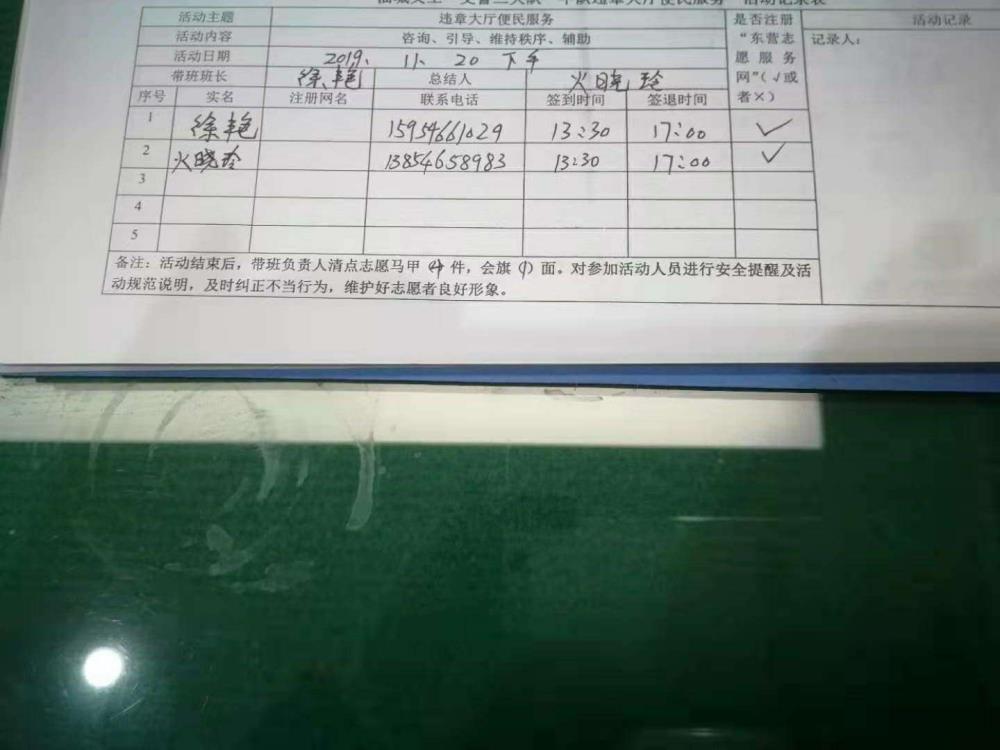 违章大厅便民服务 活动记录表
活动主题 违章大厅便民服务 是否注册“东营志愿服务网”(√或者×) 活动记录
活动内容 咨询、引导、维持秩序、辅助 记录人:
活动日期 2019. 11. 20 下午
带班班长 徐艳 总结人 火晓玲
序号 实名 注册网名 联系电话 签到时间 签退时间
1 徐艳 15954661029 13:30 17:00 ✓
2 火晓玲 13854658983 13:30 17:00 ✓
3
4
5
备注:活动结束后,带班负责人清点志愿马甲(4)件,会旗(1)面。对参加活动人员进行安全提醒及活
动规范说明,及时纠正不当行为,维护好志愿者良好形象。